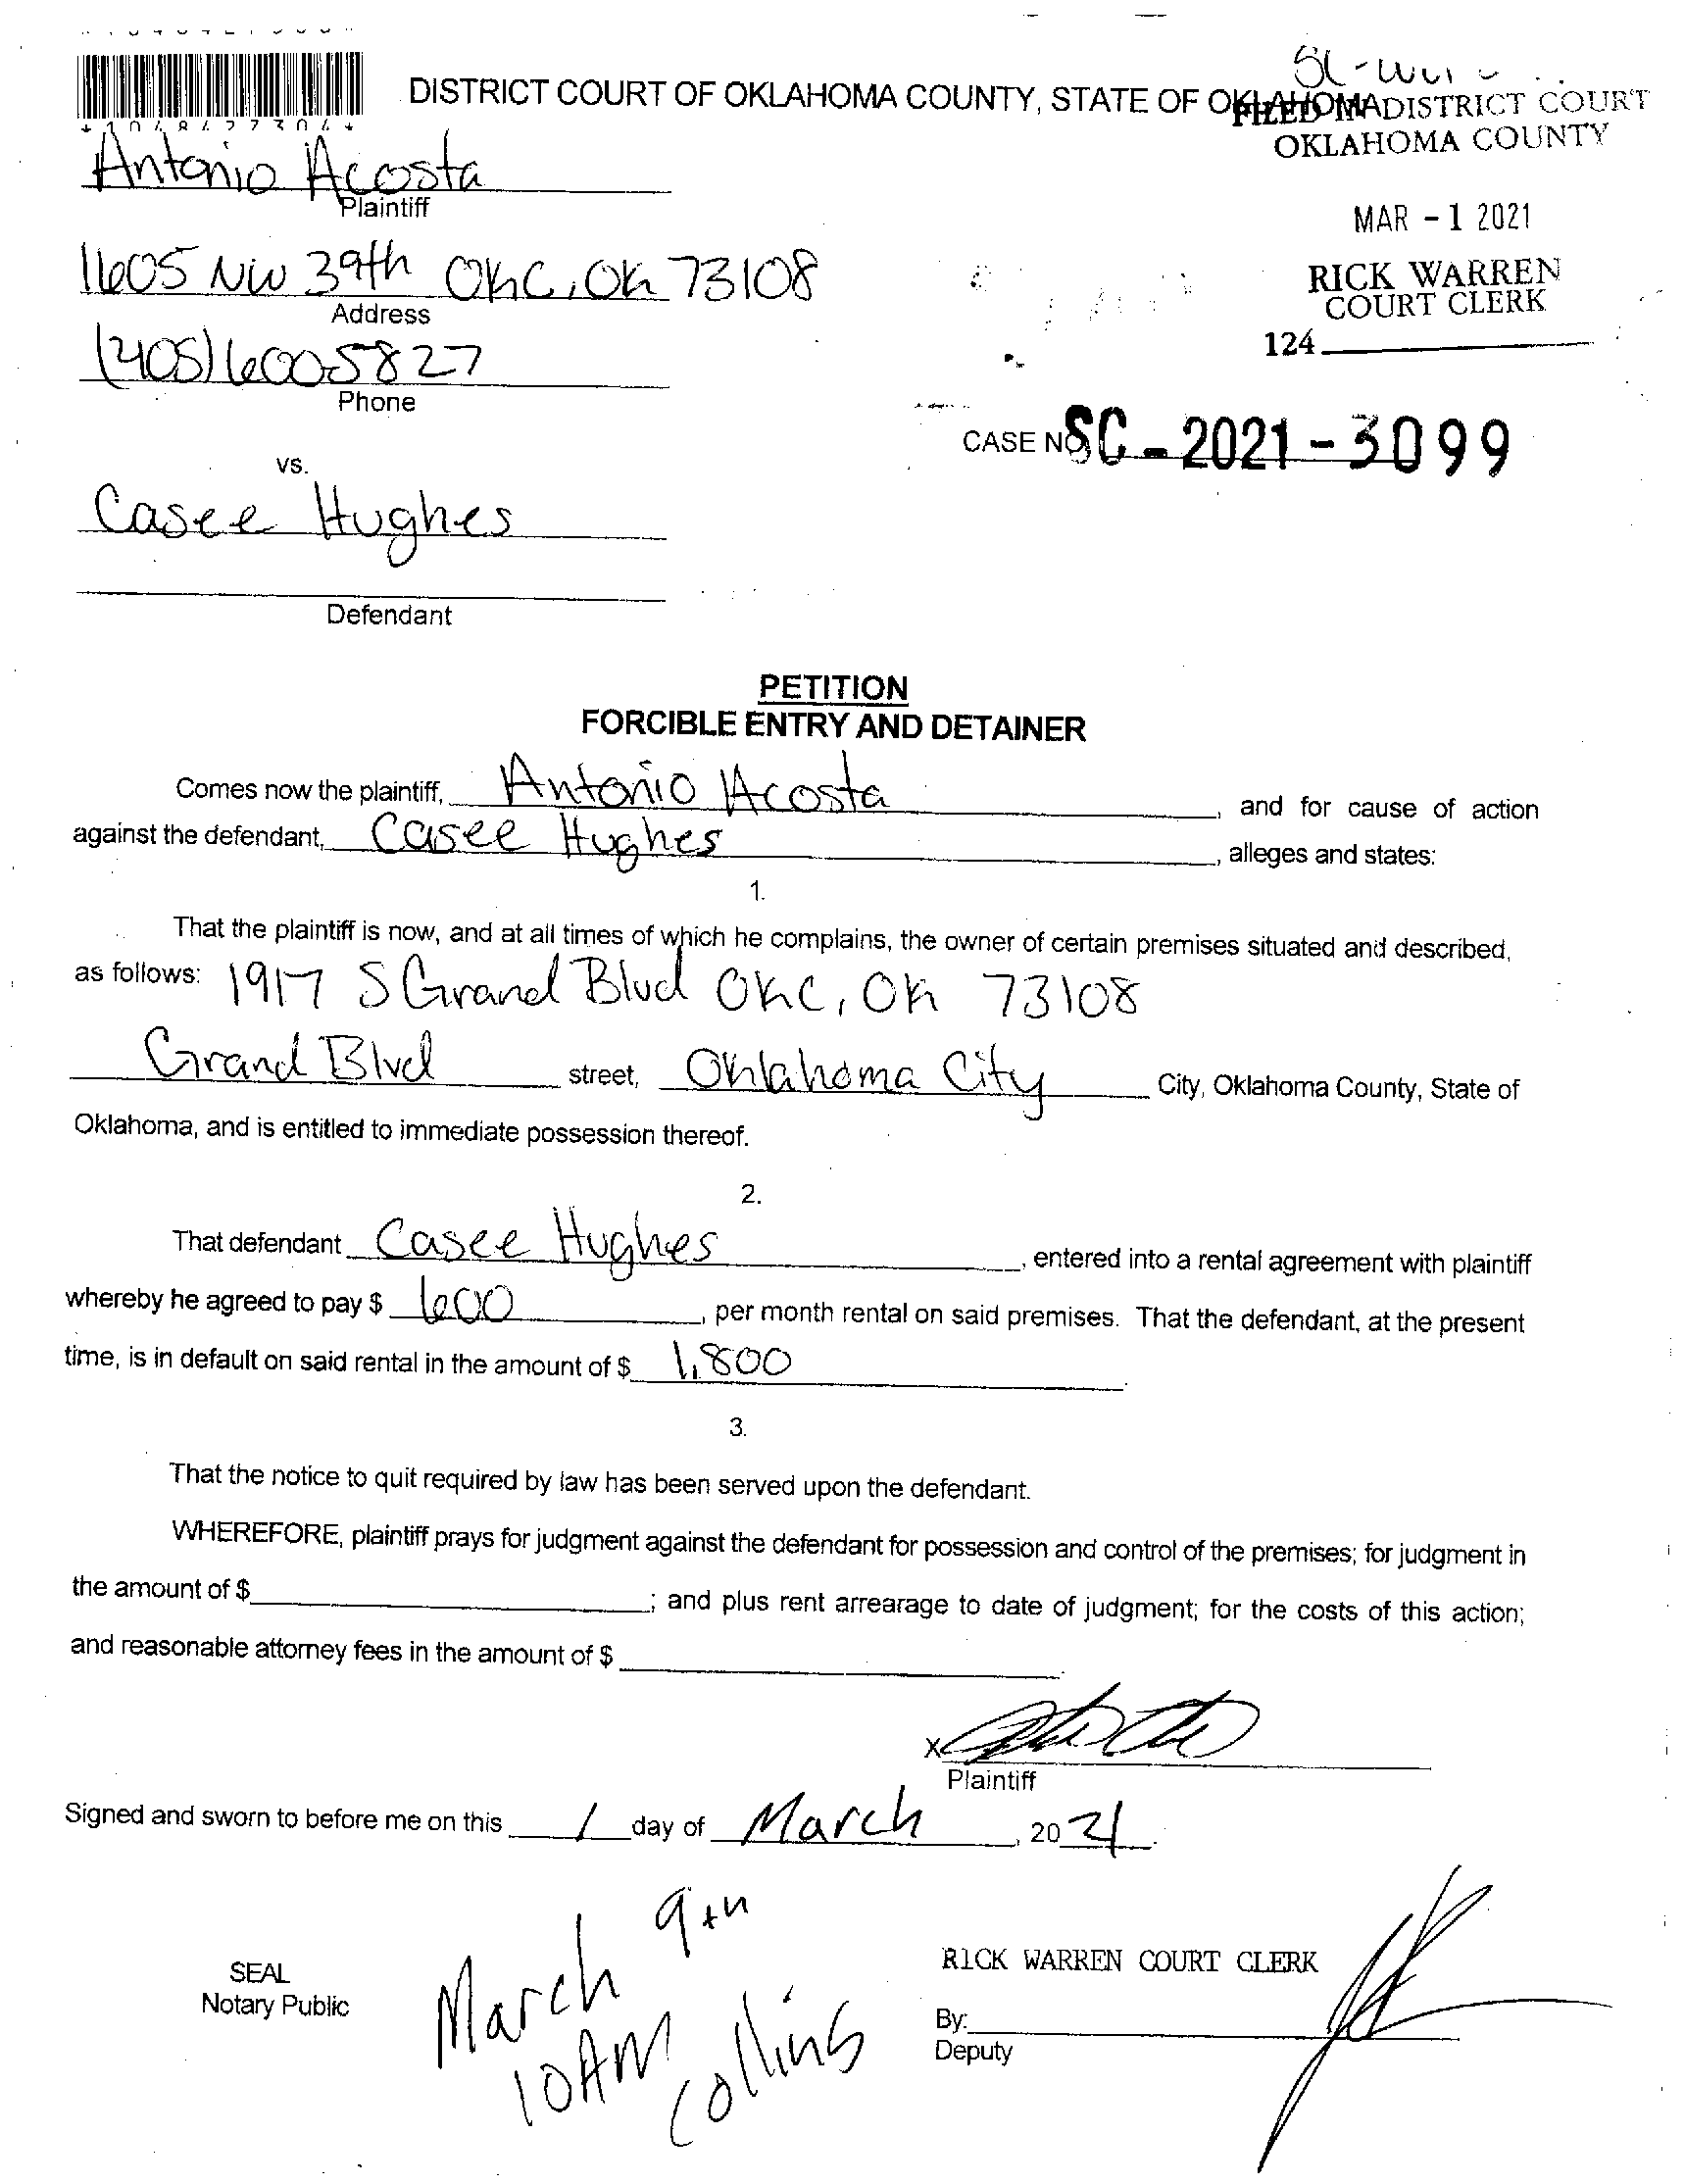 DISTRICT COURT OF OKLAHOMA COUNTY, STATE OF OKLAHOMA
FILED DISTRICT COURT
OKLAHOMA COUNTY
Antonio Acosta
Plaintiff
MAR - 1 2021
1605 NW 39th OKC, OK 73108
Address
RICK WARREN
COURT CLERK
124
(405) 600 5827
Phone
CASE NO. SC - 2021 - 3099
vs.
Casee Hughes
Defendant
PETITION
FORCIBLE ENTRY AND DETAINER
Comes now the plaintiff, Antonio Acosta, and for cause of action
against the defendant, Casee Hughes, alleges and states:
1.
That the plaintiff is now, and at all times of which he complains, the owner of certain premises situated and described,
as follows: 1917 S Grand Blvd OKC, OK 73108
Grand Blvd street, Oklahoma City City, Oklahoma County, State of
Oklahoma, and is entitled to immediate possession thereof.
2.
That defendant Casee Hughes, entered into a rental agreement with plaintiff
whereby he agreed to pay $ 600, per month rental on said premises. That the defendant, at the present
time, is in default on said rental in the amount of $ 1,800.
3.
That the notice to quit required by law has been served upon the defendant.
WHEREFORE, plaintiff prays for judgment against the defendant for possession and control of the premises; for judgment in
the amount of $ ; and plus rent arrearage to date of judgment; for the costs of this action;
and reasonable attorney fees in the amount of $
X
Plaintiff
Signed and sworn to before me on this 1 day of March, 2021.
March 9th
10AM
Collins
SEAL
Notary Public
RICK WARREN COURT CLERK
By:
Deputy